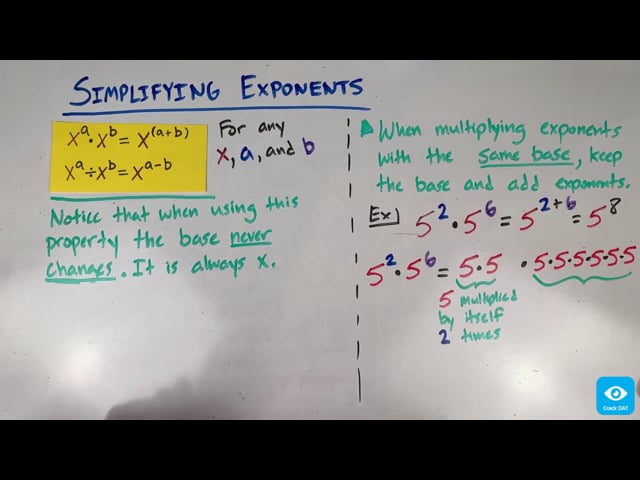 SIMPLIFYING EXPONENTS
xᵃ·xᵇ = x⁽ᵃ⁺ᵇ⁾
xᵃ÷xᵇ = xᵃ⁻ᵇ
For any
x, a, and b
Notice that when using this
property the base never
changes. It is always x.
When multiplying exponents
with the same base, keep
the base and add exponents.
Ex) 5²·5⁶ = 5²⁺⁶ = 5⁸
5²·5⁶ = 5·5 · 5·5·5·5·5·5
5 multiplied
by itself
2 times
Crack OAT